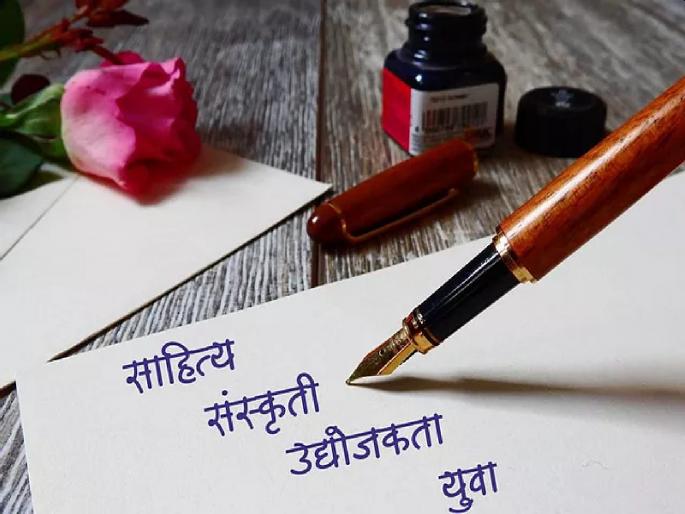 साहित्य
संस्कृती
उद्योजकता
युवा